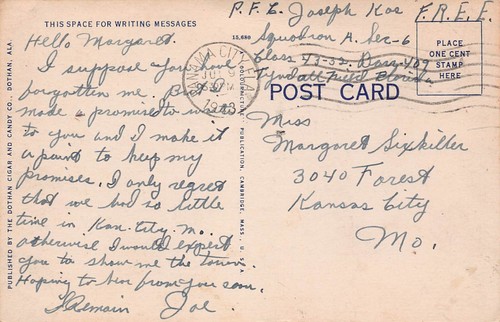 THIS SPACE FOR WRITING MESSAGES
Hello Margaret.
I suppose you have
forgotten me. But I
made a promise to write
to you and I make it
a point to keep my
promises. I only regret
that we had so little
time in Kan. City, Mo.
otherwise I would expect
you to show me the town.
Hoping to hear from you soon.
I Remain Joe.
PUBLISHED BY THE DOTHAN CIGAR AND CANDY CO., DOTHAN, ALA.
15,686
COLOURPICTURE PUBLICATION, CAMBRIDGE, MASS., U. S. A.
P.F.C. Joseph Kos F.R.E.E.
Squadron A. Sec-6
Class 43-32
Tyndall Field Florida
PANAMA CITY
1943
PLACE
ONE CENT
STAMP
HERE
POST CARD
Miss
Margaret Sixkiller
3040 Forest
Kansas City
Mo.